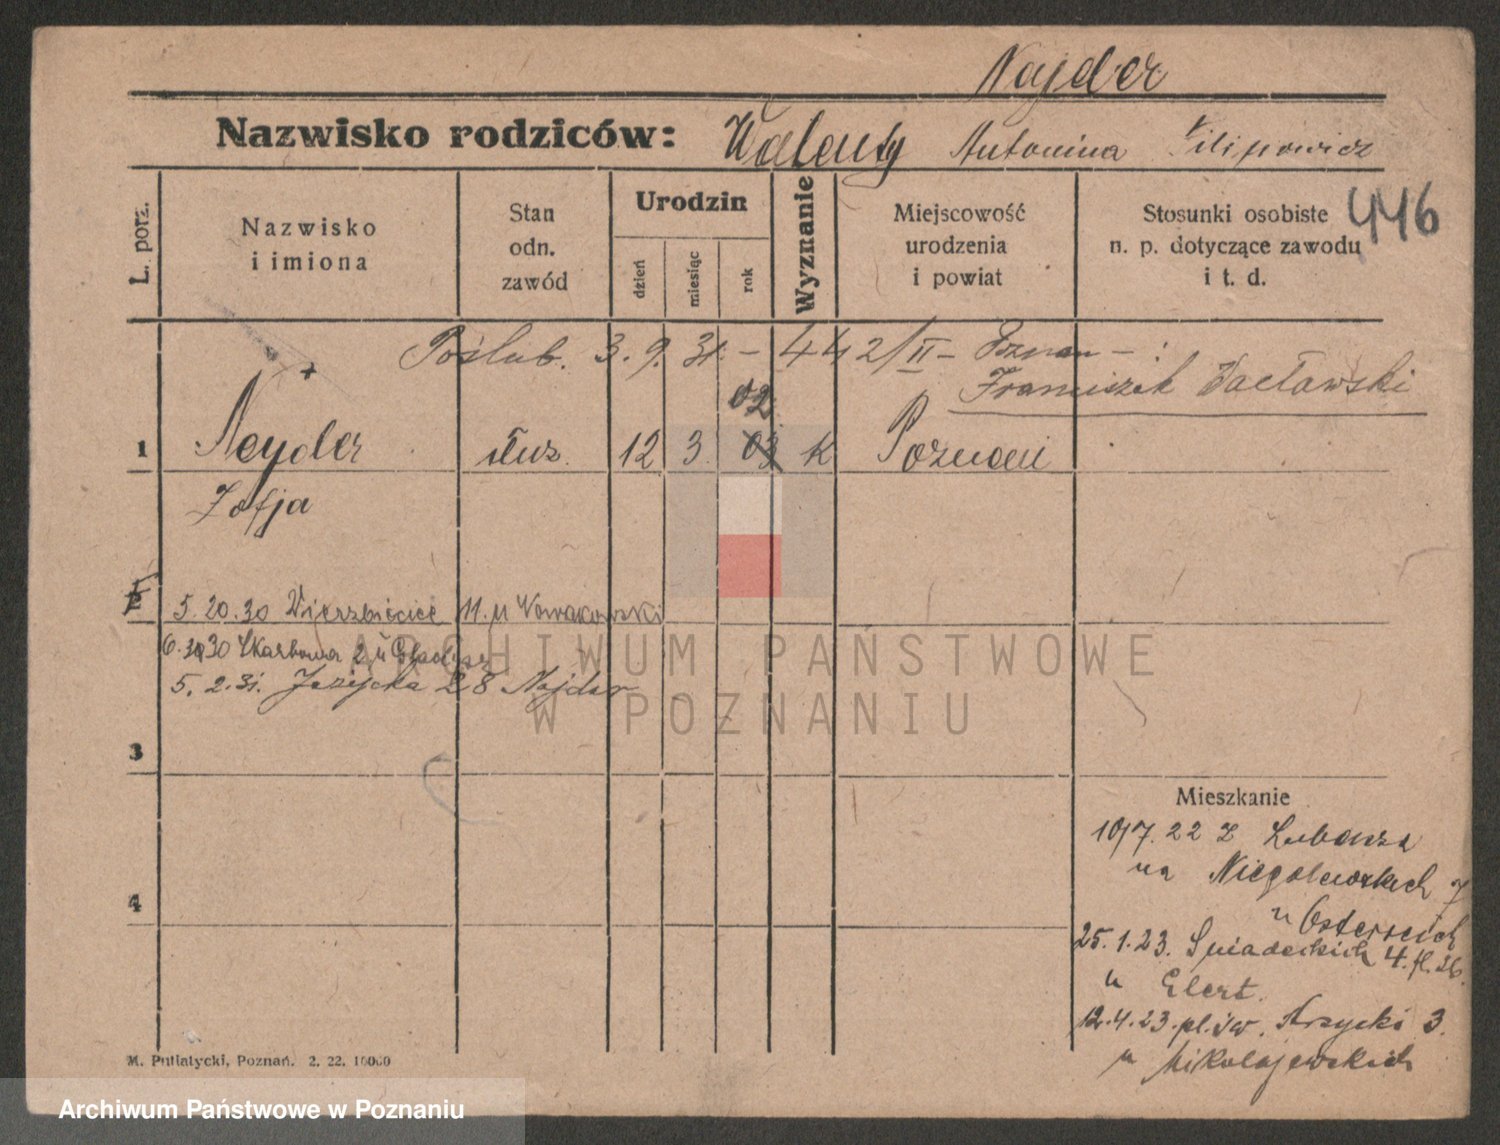 Najder
Nazwisko rodziców: Walenty Antonina Filipowicz
L. porz.
Nazwisko
i imiona
Stan
odn.
zawód
Urodzin
dzień
miesiąc
rok
Wyznanie
Miejscowość
urodzenia
i powiat
Stosunki osobiste
n. p. dotyczące zawodu
i t. d.
446
Poślub. 3. 9. 31. – 442/II – Poznań – :
Franciszek Wacławski
02
1 Neyder służ. 12 3 03 k Poznań
Zofja
5. 20.30 Wierzbięcice 11. u Nowakowski
30 Skarbowa 2 u
5. 2. 31. Jeżycka 28 Najder
3
4
Mieszkanie
10/7. 22 z Lubosza
na Niegolewskich 7
u Österreich
25. 1. 23. Śniadeckich 4.
u Elert.
12. 4. 23. pl. św. Krzyski 3.
u Mikołajewskich
M. Putiatycki, Poznań. 2. 22. 10000
ARCHIWUM PAŃSTWOWE
W POZNANIU
Archiwum Państwowe w Poznaniu